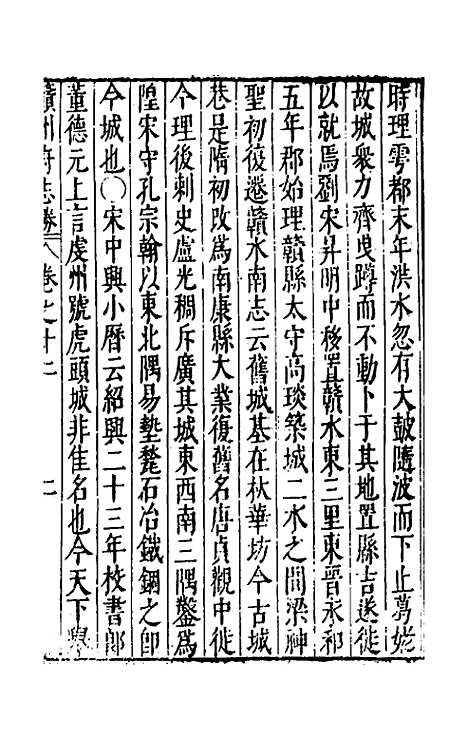 時理雩都末年洪水忽有大皷隨波而下止葛姥
故城衆力齊曳蹲而不動卜于其地置縣吉遂徙
以就焉劉宋昇明中移置贛水東三里東晉永和
五年郡始理贛縣太守高琰築城二水之間梁神
聖初復遷贛水南志云舊城基在秋華坊今古城
巷是隋初改爲南康縣大業復舊名唐貞觀中徙
今理後刺史盧光稠斥廣其城東西南三隅鑿爲
隍宋守孔宗翰以東北隅易墊甃石冶鐵錮之卽
今城也〇宋中興小曆云紹興二十三年校書郎
董德元上言虔州號虎頭城非佳名也今天下舉
贛州府志勝 卷之十二 二